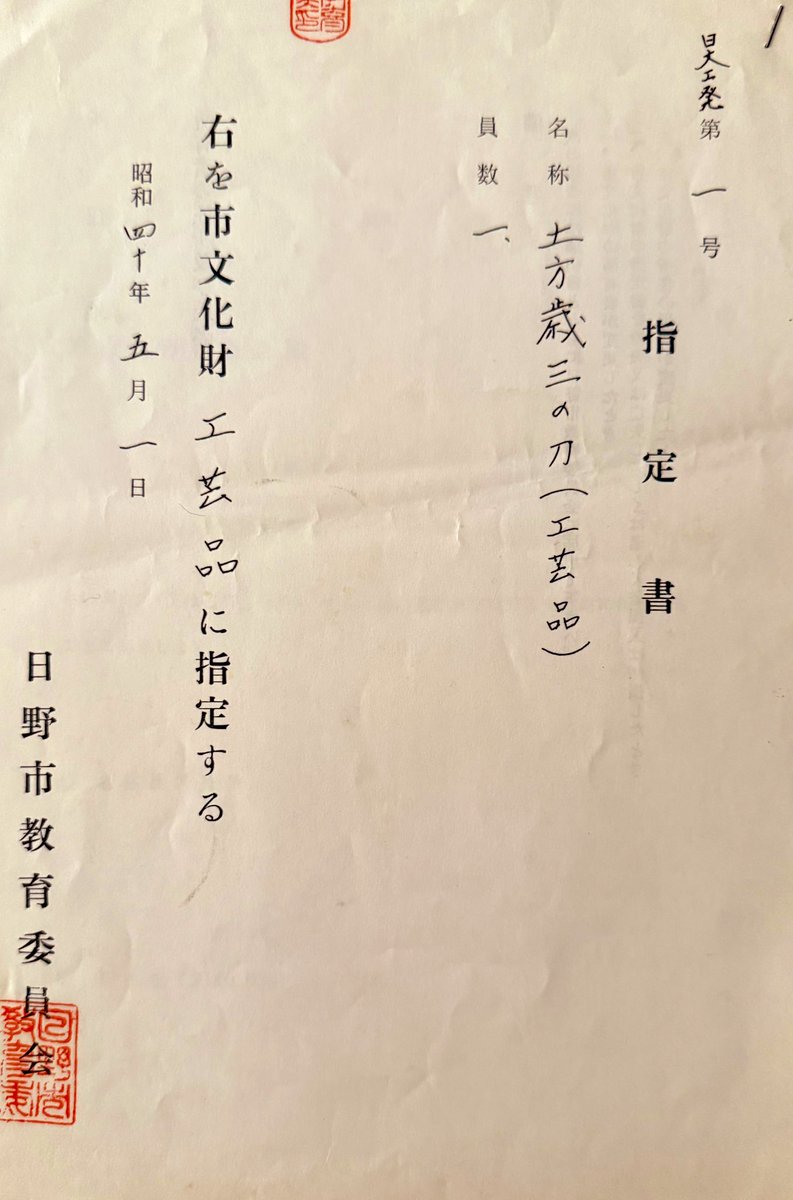 日文工発第一号
指定書
名称 土方歳三の刀(工芸品)
員数 一、
右を市文化財 工芸品に指定する
昭和四十年五月一日
日野市教育委員会